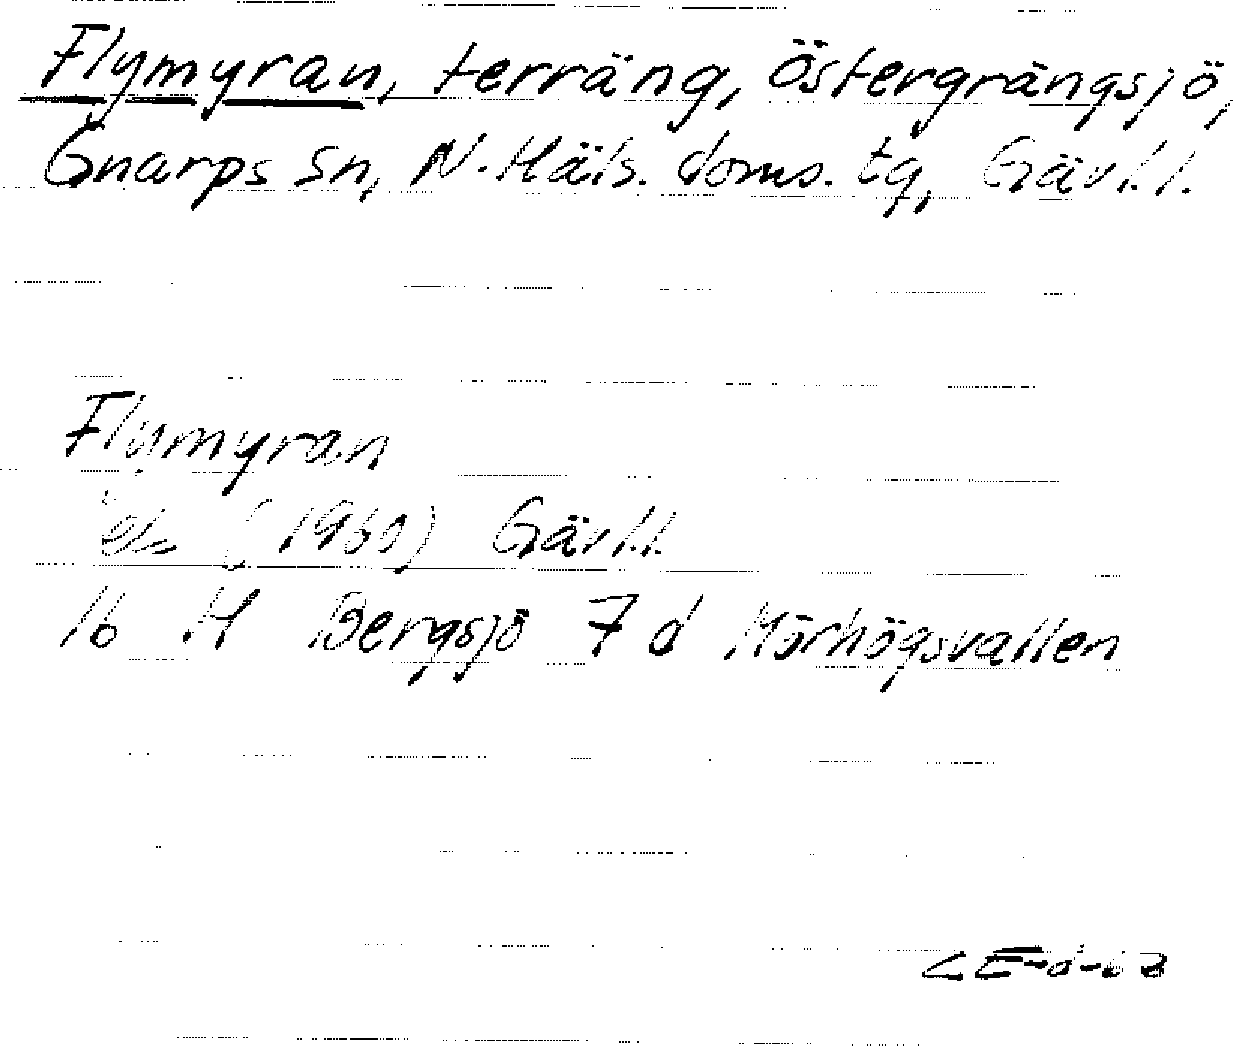 Flymyran, terräng, Östergrängsjö,
Gnarps Sn, N. Häls. doms. tg, Gävl. l.
Flymyran
ek (1960) Gävl. l.
16 H Bergsjö 7 d Mörhögsvallen